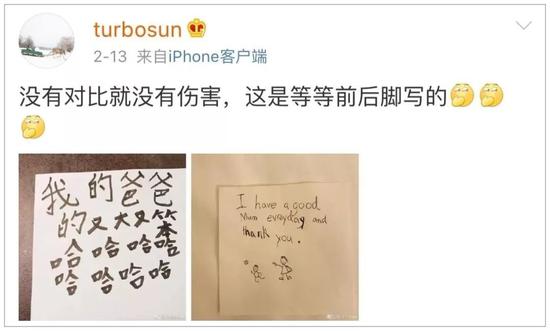 turbosun
2-13 来自iPhone客户端
没有对比就没有伤害，这是等等前后脚写的
我的爸爸
的又大又笨
哈哈哈哈
哈哈哈哈
I have a good
Mum everyday and
thank you.